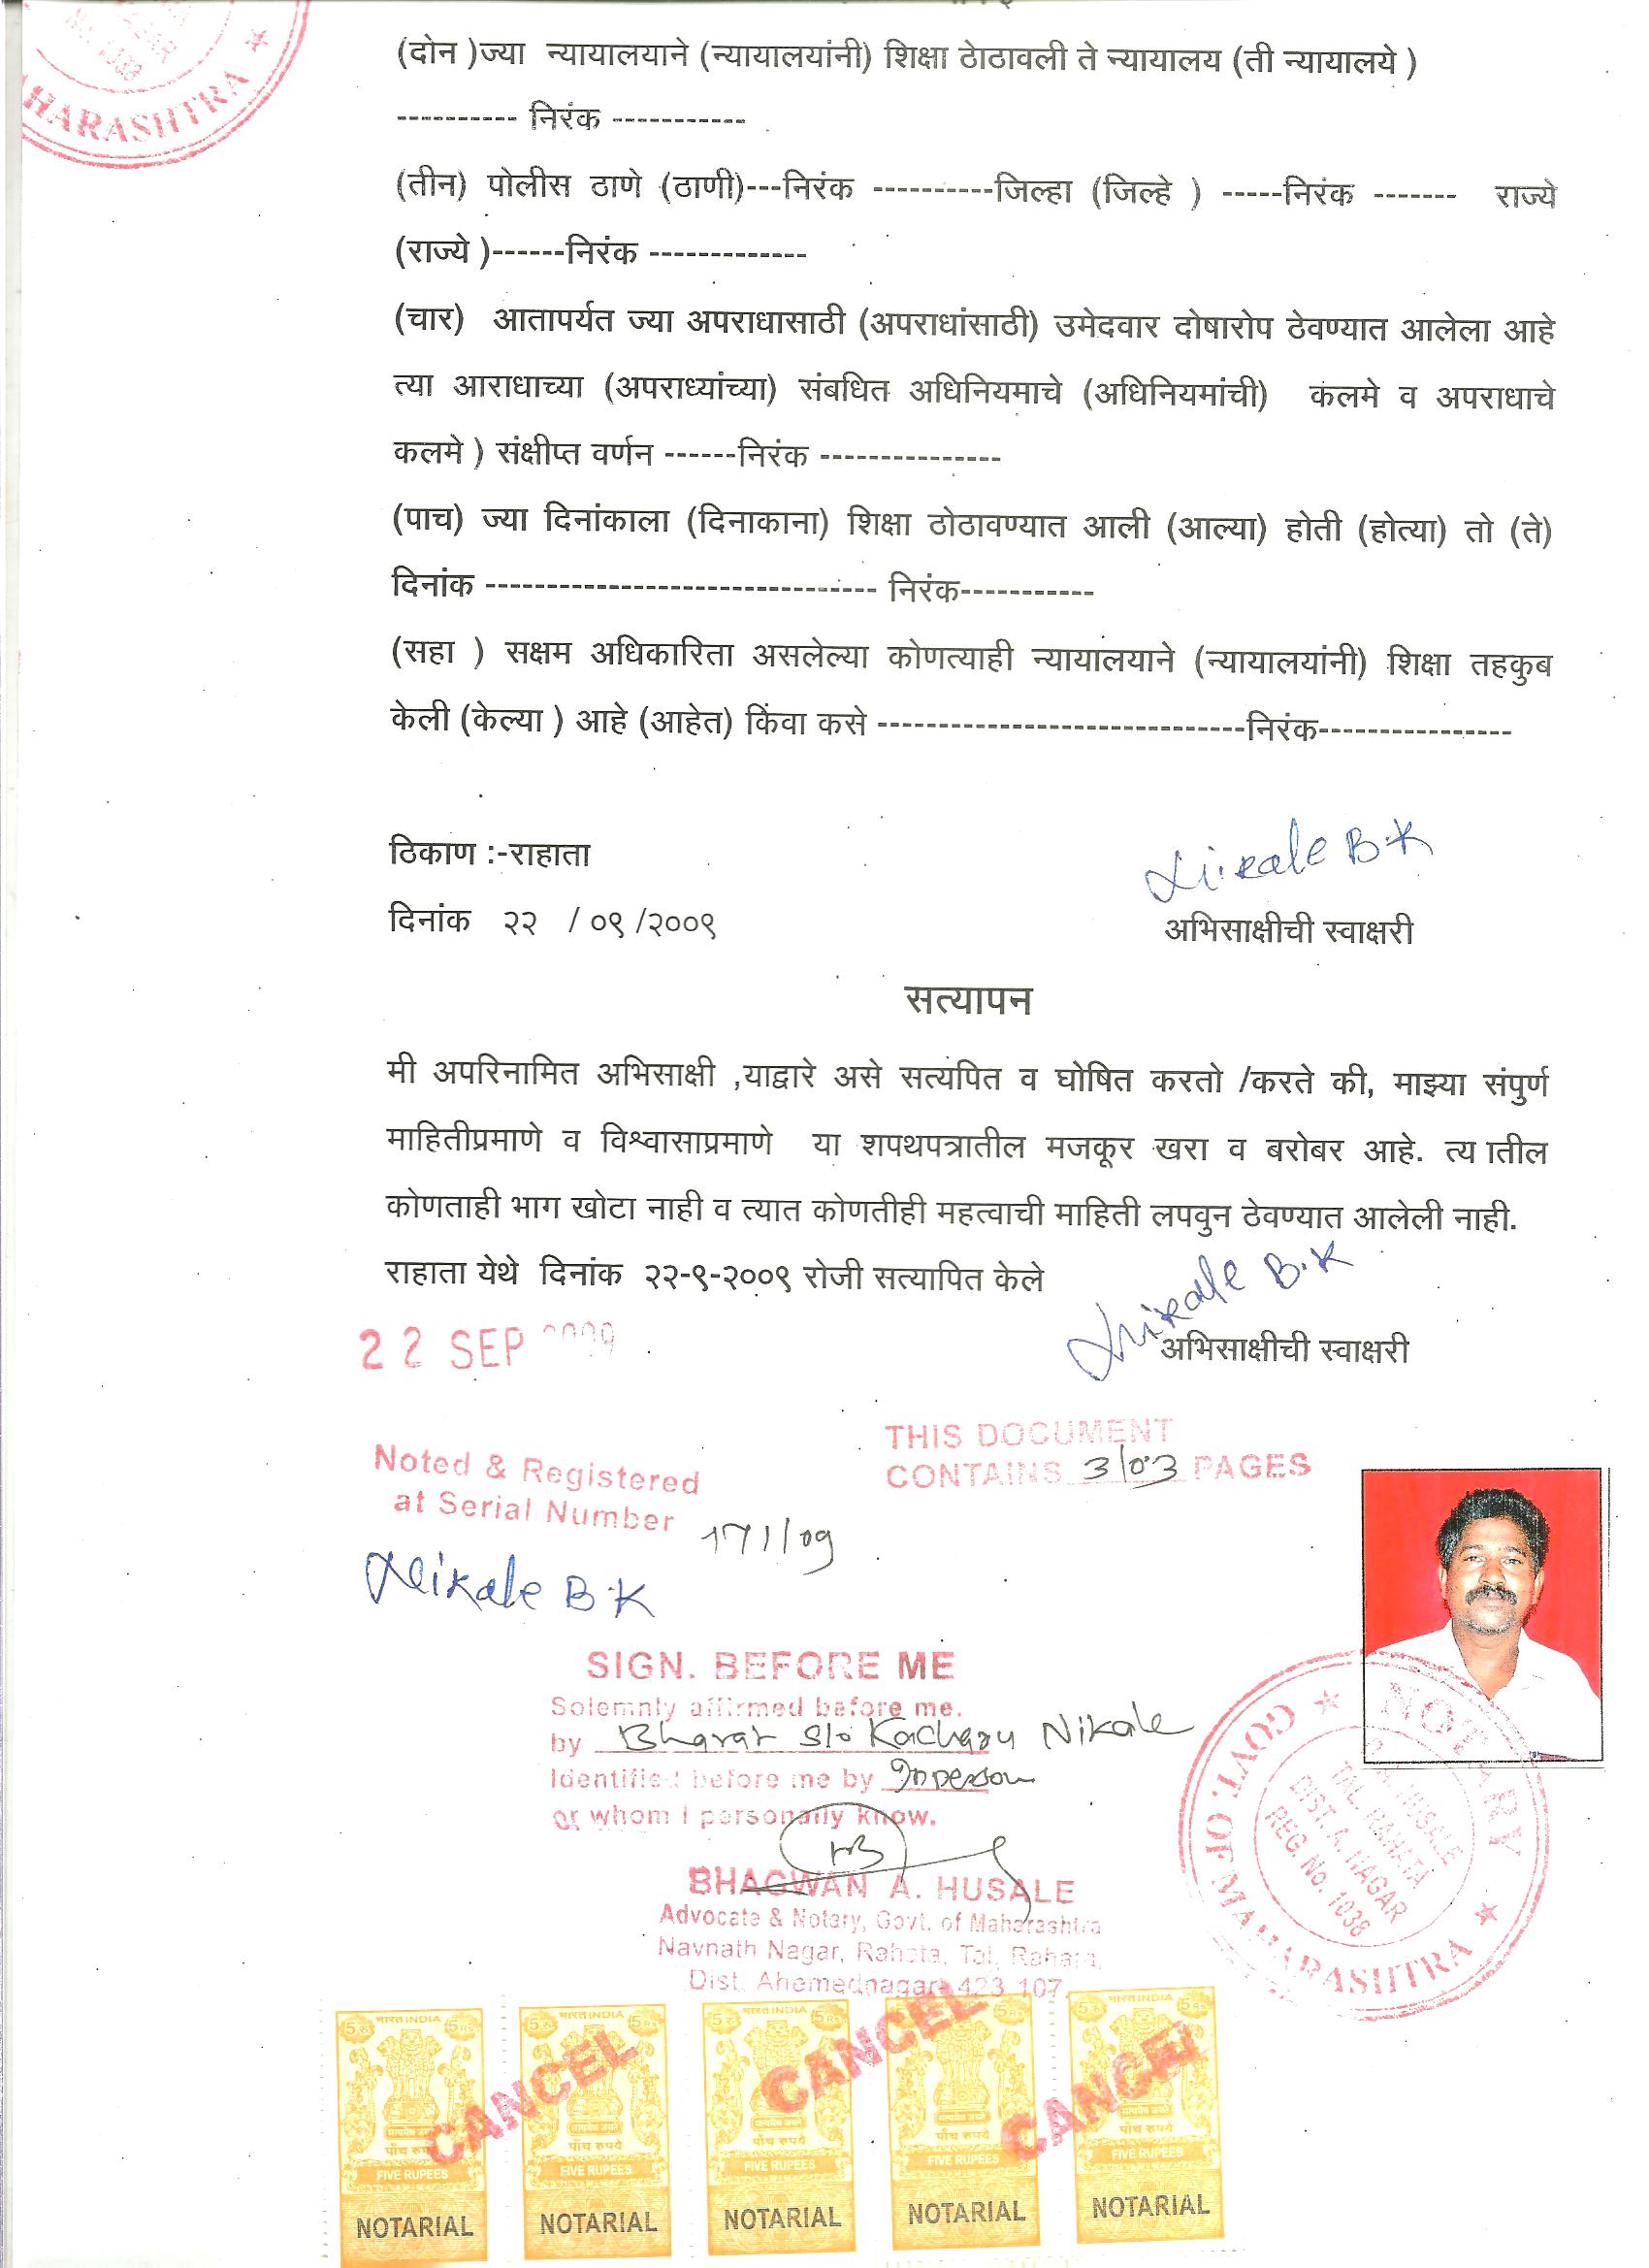 HARASHTRA
(दोन )ज्या न्यायालयाने (न्यायालयांनी) शिक्षा ठेाठावली ते न्यायालय (ती न्यायालये )
---------- निरंक -----------
(तीन) पोलीस ठाणे (ठाणी)---निरंक ----------जिल्हा (जिल्हे ) -----निरंक ------- राज्ये
(राज्ये )------निरंक -------------
(चार) आतापर्यत ज्या अपराधासाठी (अपराधांसाठी) उमेदवार दोषारोप ठेवण्यात आलेला आहे
त्या आराधाच्या (अपराध्यांच्या) संबधित अधिनियमाचे (अधिनियमांची) कलमे व अपराधाचे
कलमे ) संक्षीप्त वर्णन ------निरंक ---------------
(पाच) ज्या दिनांकाला (दिनाकाना) शिक्षा ठोठावण्यात आली (आल्या) होती (होत्या) तो (ते)
दिनांक -------------------------------- निरंक-----------
(सहा ) सक्षम अधिकारिता असलेल्या कोणत्याही न्यायालयाने (न्यायालयांनी) शिक्षा तहकुब
केली (केल्या ) आहे (आहेत) किंवा कसे ------------------------------निरंक----------------
ठिकाण :-राहाता
Nikale B.K
दिनांक २२ / ०९ /२००९
अभिसाक्षीची स्वाक्षरी
सत्यापन
मी अपरिनामित अभिसाक्षी ,याद्वारे असे सत्यपित व घोषित करतो /करते की, माझ्या संपुर्ण
माहितीप्रमाणे व विश्वासाप्रमाणे या शपथपत्रातील मजकूर खरा व बरोबर आहे. त्य ातील
कोणताही भाग खोटा नाही व त्यात कोणतीही महत्वाची माहिती लपवुन ठेवण्यात आलेली नाही.
राहाता येथे दिनांक २२-९-२००९ रोजी सत्यापित केले
Nikale B.K
अभिसाक्षीची स्वाक्षरी
22 SEP 2009
THIS DOCUMENT
CONTAINS 3/03 PAGES
Noted & Registered
at Serial Number
Nikale B.K
SIGN. BEFORE ME
Solemnly affirmed before me.
by Bharat s/o Kacharu Nikale
Identified before me by Inperson
or whom I personally know.
BHAGWAN A. HUSALE
Advocate & Notary, Govt. of Maharashtra
Navnath Nagar, Rahata, Tal. Rahata,
Dist. Ahemednagar- 423 107.
NOTARY
GOVT. OF MAHARASHTRA
HUSALE
TAL. RAHATA
DIST. A. NAGAR
REG. No. 1038
भारत INDIA भारत INDIA भारत INDIA भारत INDIA भारत INDIA
CANCEL CANCEL CANCEL
पाँच रुपये पाँच रुपये पाँच रुपये पाँच रुपये पाँच रुपये
FIVE RUPEES FIVE RUPEES FIVE RUPEES FIVE RUPEES FIVE RUPEES
NOTARIAL NOTARIAL NOTARIAL NOTARIAL NOTARIAL